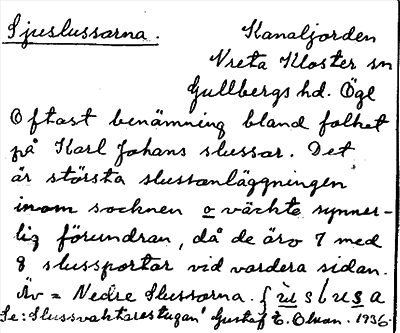 Sjuslussarna.
Kanaljorden
Vreta Kloster sn
Gullbergs hd. Ögl
Oftast benämning bland folket
på Karl Johans slussar. Det
är största slussanläggningen
inom socknen o väckte synner-
lig förundran, då de äro 7 med
8 slussportar vid vardera sidan.
Äv = Nedre Slussarna.
Se: Slussvaktarestugan Gustaf E. Olson. 1936.